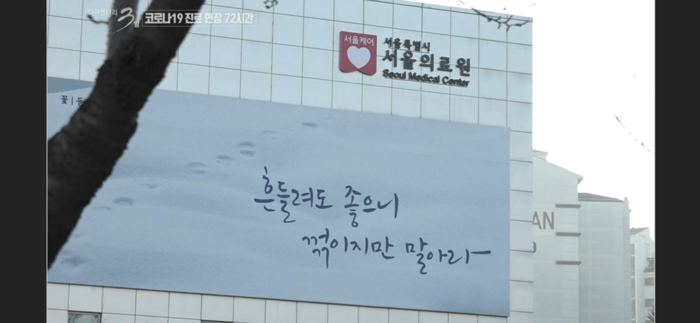 3일 코로나19 진료 현장 72시간
서울케어
서울특별시
서울의료원
Seoul Medical Center
꽃
흔들려도 좋으니
꺾이지만 말아라
AN
9